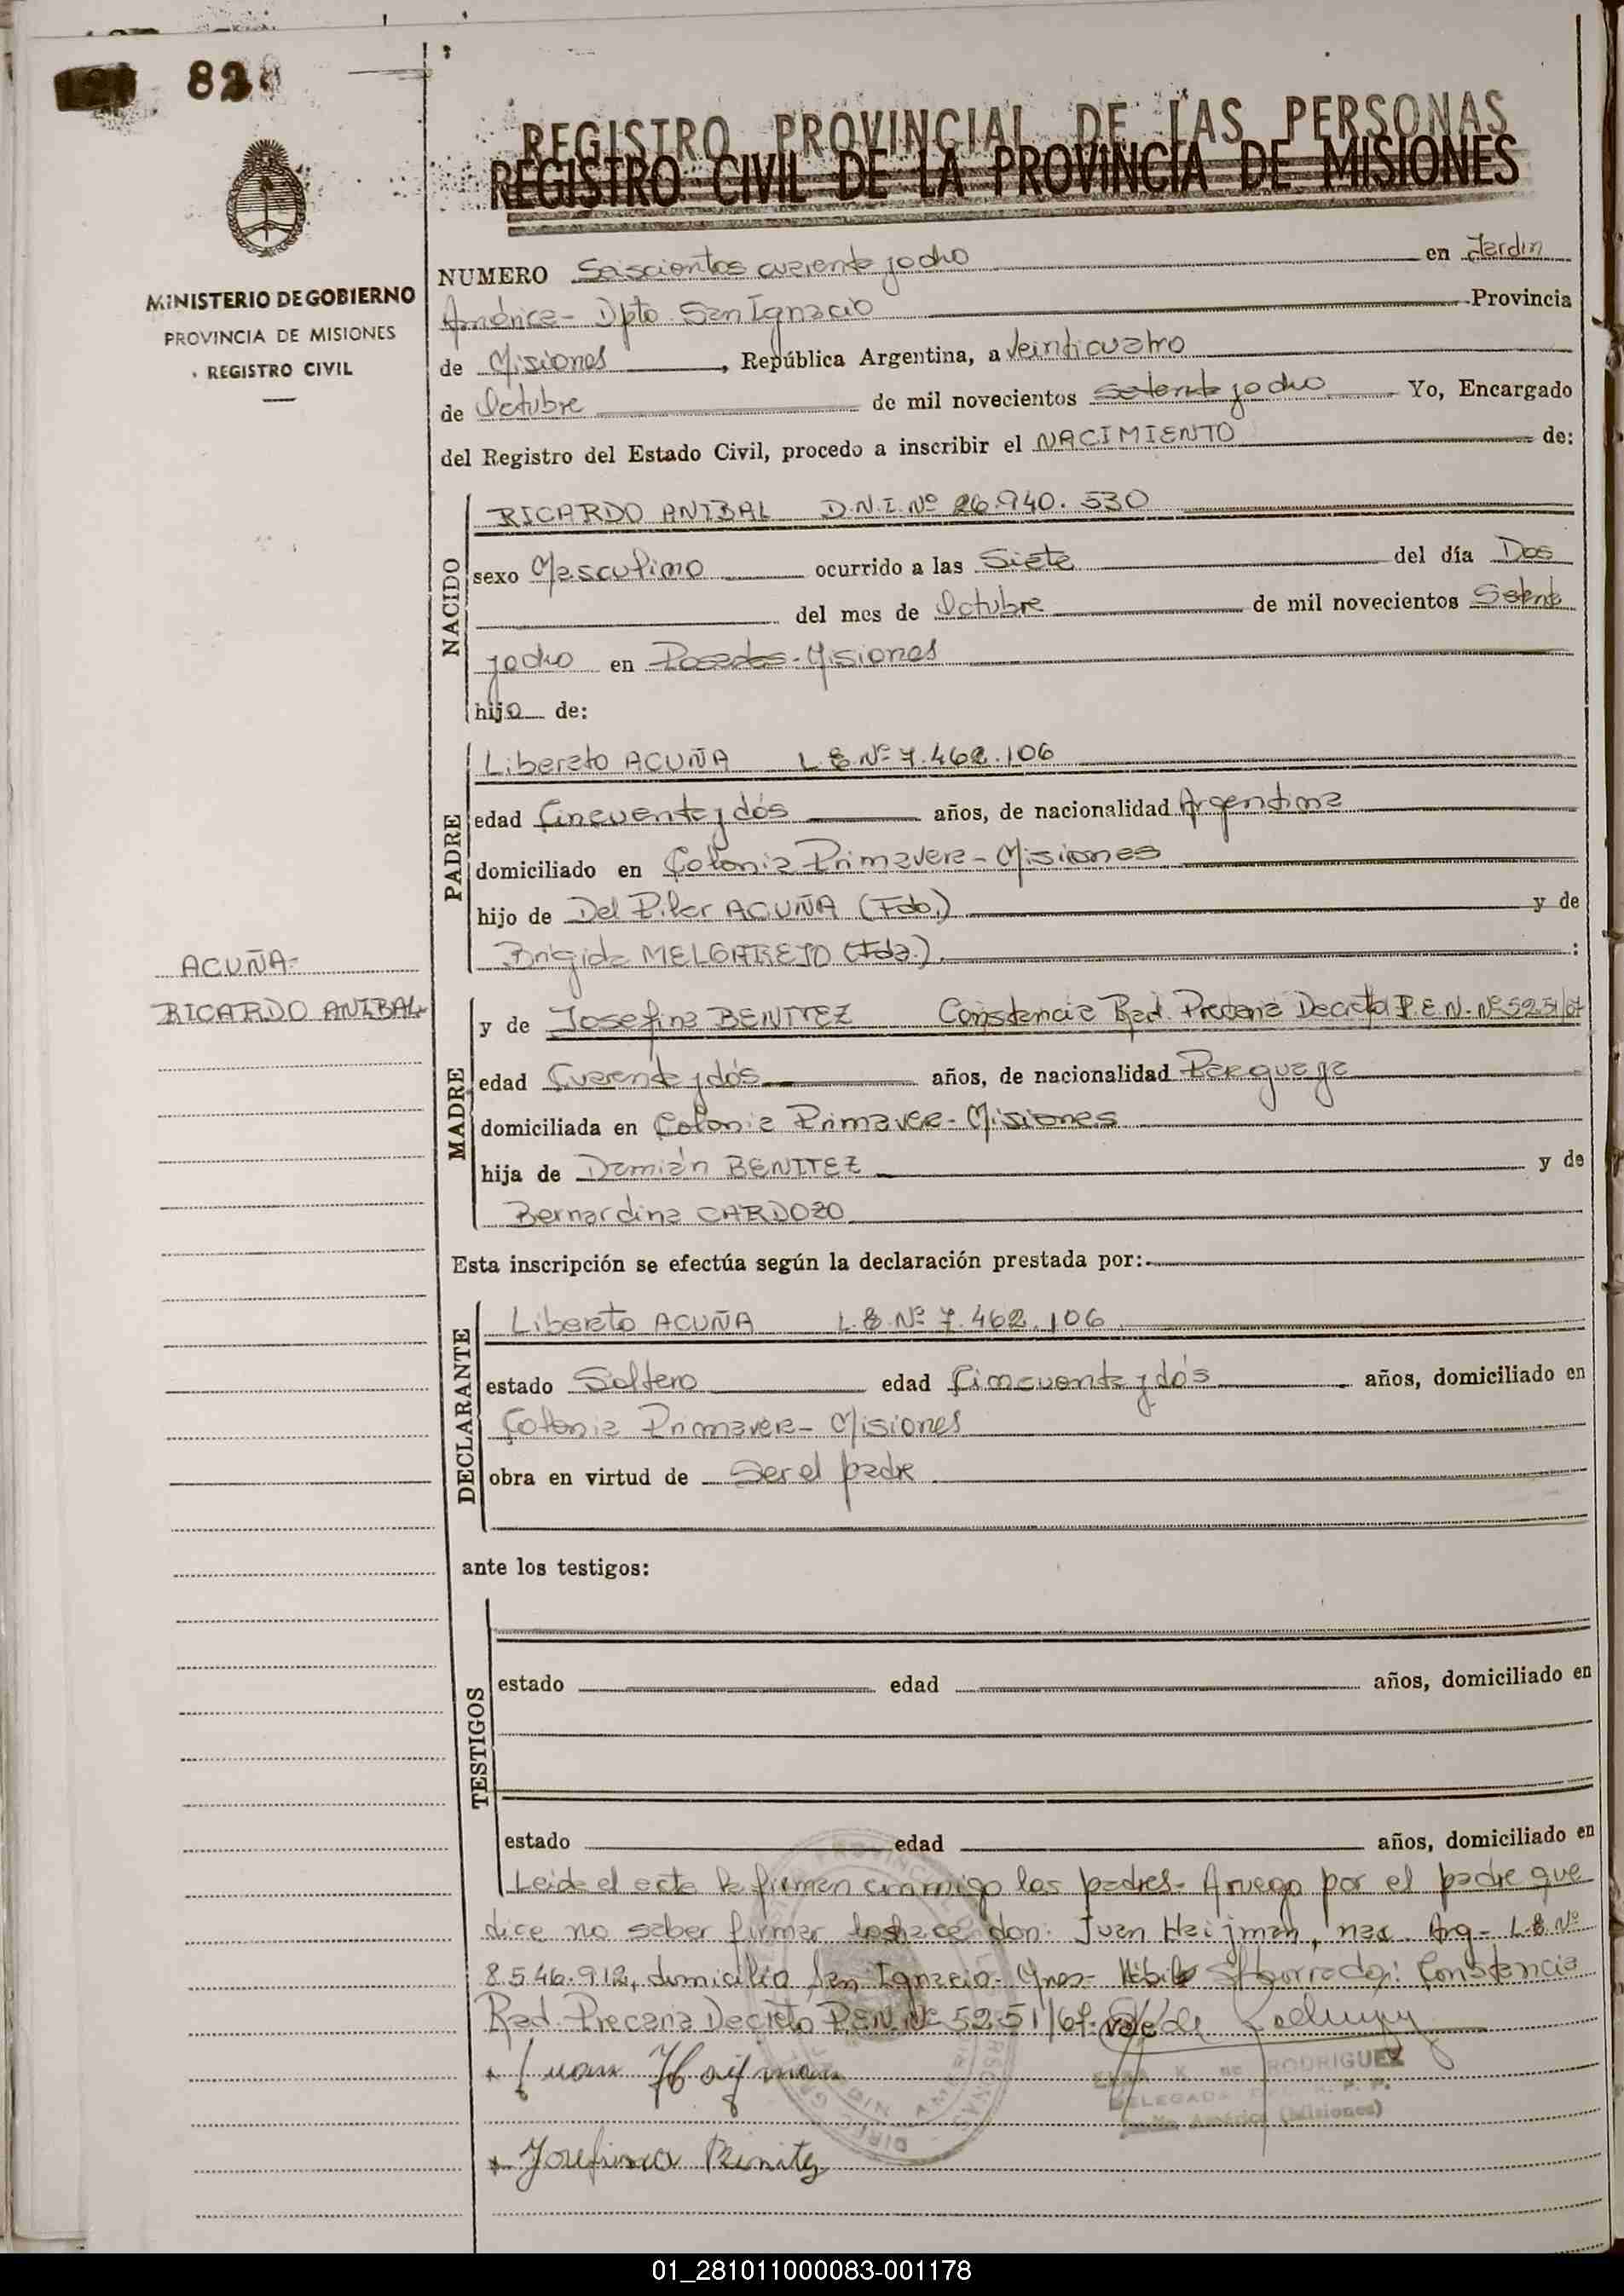 82
REGISTRO PROVINCIAL DE LAS PERSONAS
REGISTRO CIVIL DE LA PROVINCIA DE MISIONES
MINISTERIO DE GOBIERNO
PROVINCIA DE MISIONES
REGISTRO CIVIL
NUMERO Seiscientos cuarenta y ocho en Jardin
América - Dpto. San Ignacio Provincia
de Misiones, República Argentina, a Veinticuatro
de Octubre de mil novecientos setenta y ocho Yo, Encargado
del Registro del Estado Civil, procedo a inscribir el NACIMIENTO de:
NACIDO
RICARDO ANIBAL D.N.I. Nº 26.940.530
sexo Masculino ocurrido a las Siete del día Dos
del mes de Octubre de mil novecientos Setenta
y ocho en Posadas - Misiones
hijo de:
PADRE
Liberato ACUÑA L.E. Nº 7.462.106
edad Cincuenta y dós años, de nacionalidad Argentina
domiciliado en Colonia Primavera - Misiones
hijo de Del Pilar ACUÑA (Fdo.) y de
Brigida MELGAREJO (Fda.) :
ACUÑA-
RICARDO ANIBAL
MADRE
y de Josefina BENITEZ Constancia Rad. Precaria Decreto P.E.N. Nº 5251/67
edad Cuarenta y dós años, de nacionalidad Paraguaya
domiciliada en Colonia Primavera - Misiones
hija de Damián BENITEZ y de
Bernardina CARDOZO
Esta inscripción se efectúa según la declaración prestada por:
DECLARANTE
Liberato ACUÑA L.E. Nº 7.462.106
estado Soltero edad Cincuenta y dós años, domiciliado en
Colonia Primavera - Misiones
obra en virtud de Ser el padre
ante los testigos:
TESTIGOS
estado edad años, domiciliado en
estado edad años, domiciliado en
Leida el acta la firman conmigo los padres - A ruego por el padre que
dice no saber firmar lo hace don: Juan Heijman, nac. Arg - L.E. Nº
8.546.912, domicilio San Ignacio - Mnes - S/borrado: Constancia
Rad. Precaria Decreto P.E.N. Nº 5251/67 - Vale
Juan Heijman
RODRIGUEZ
DELEGADA
América (Misiones)
Josefina Benitez
01_281011000083-001178